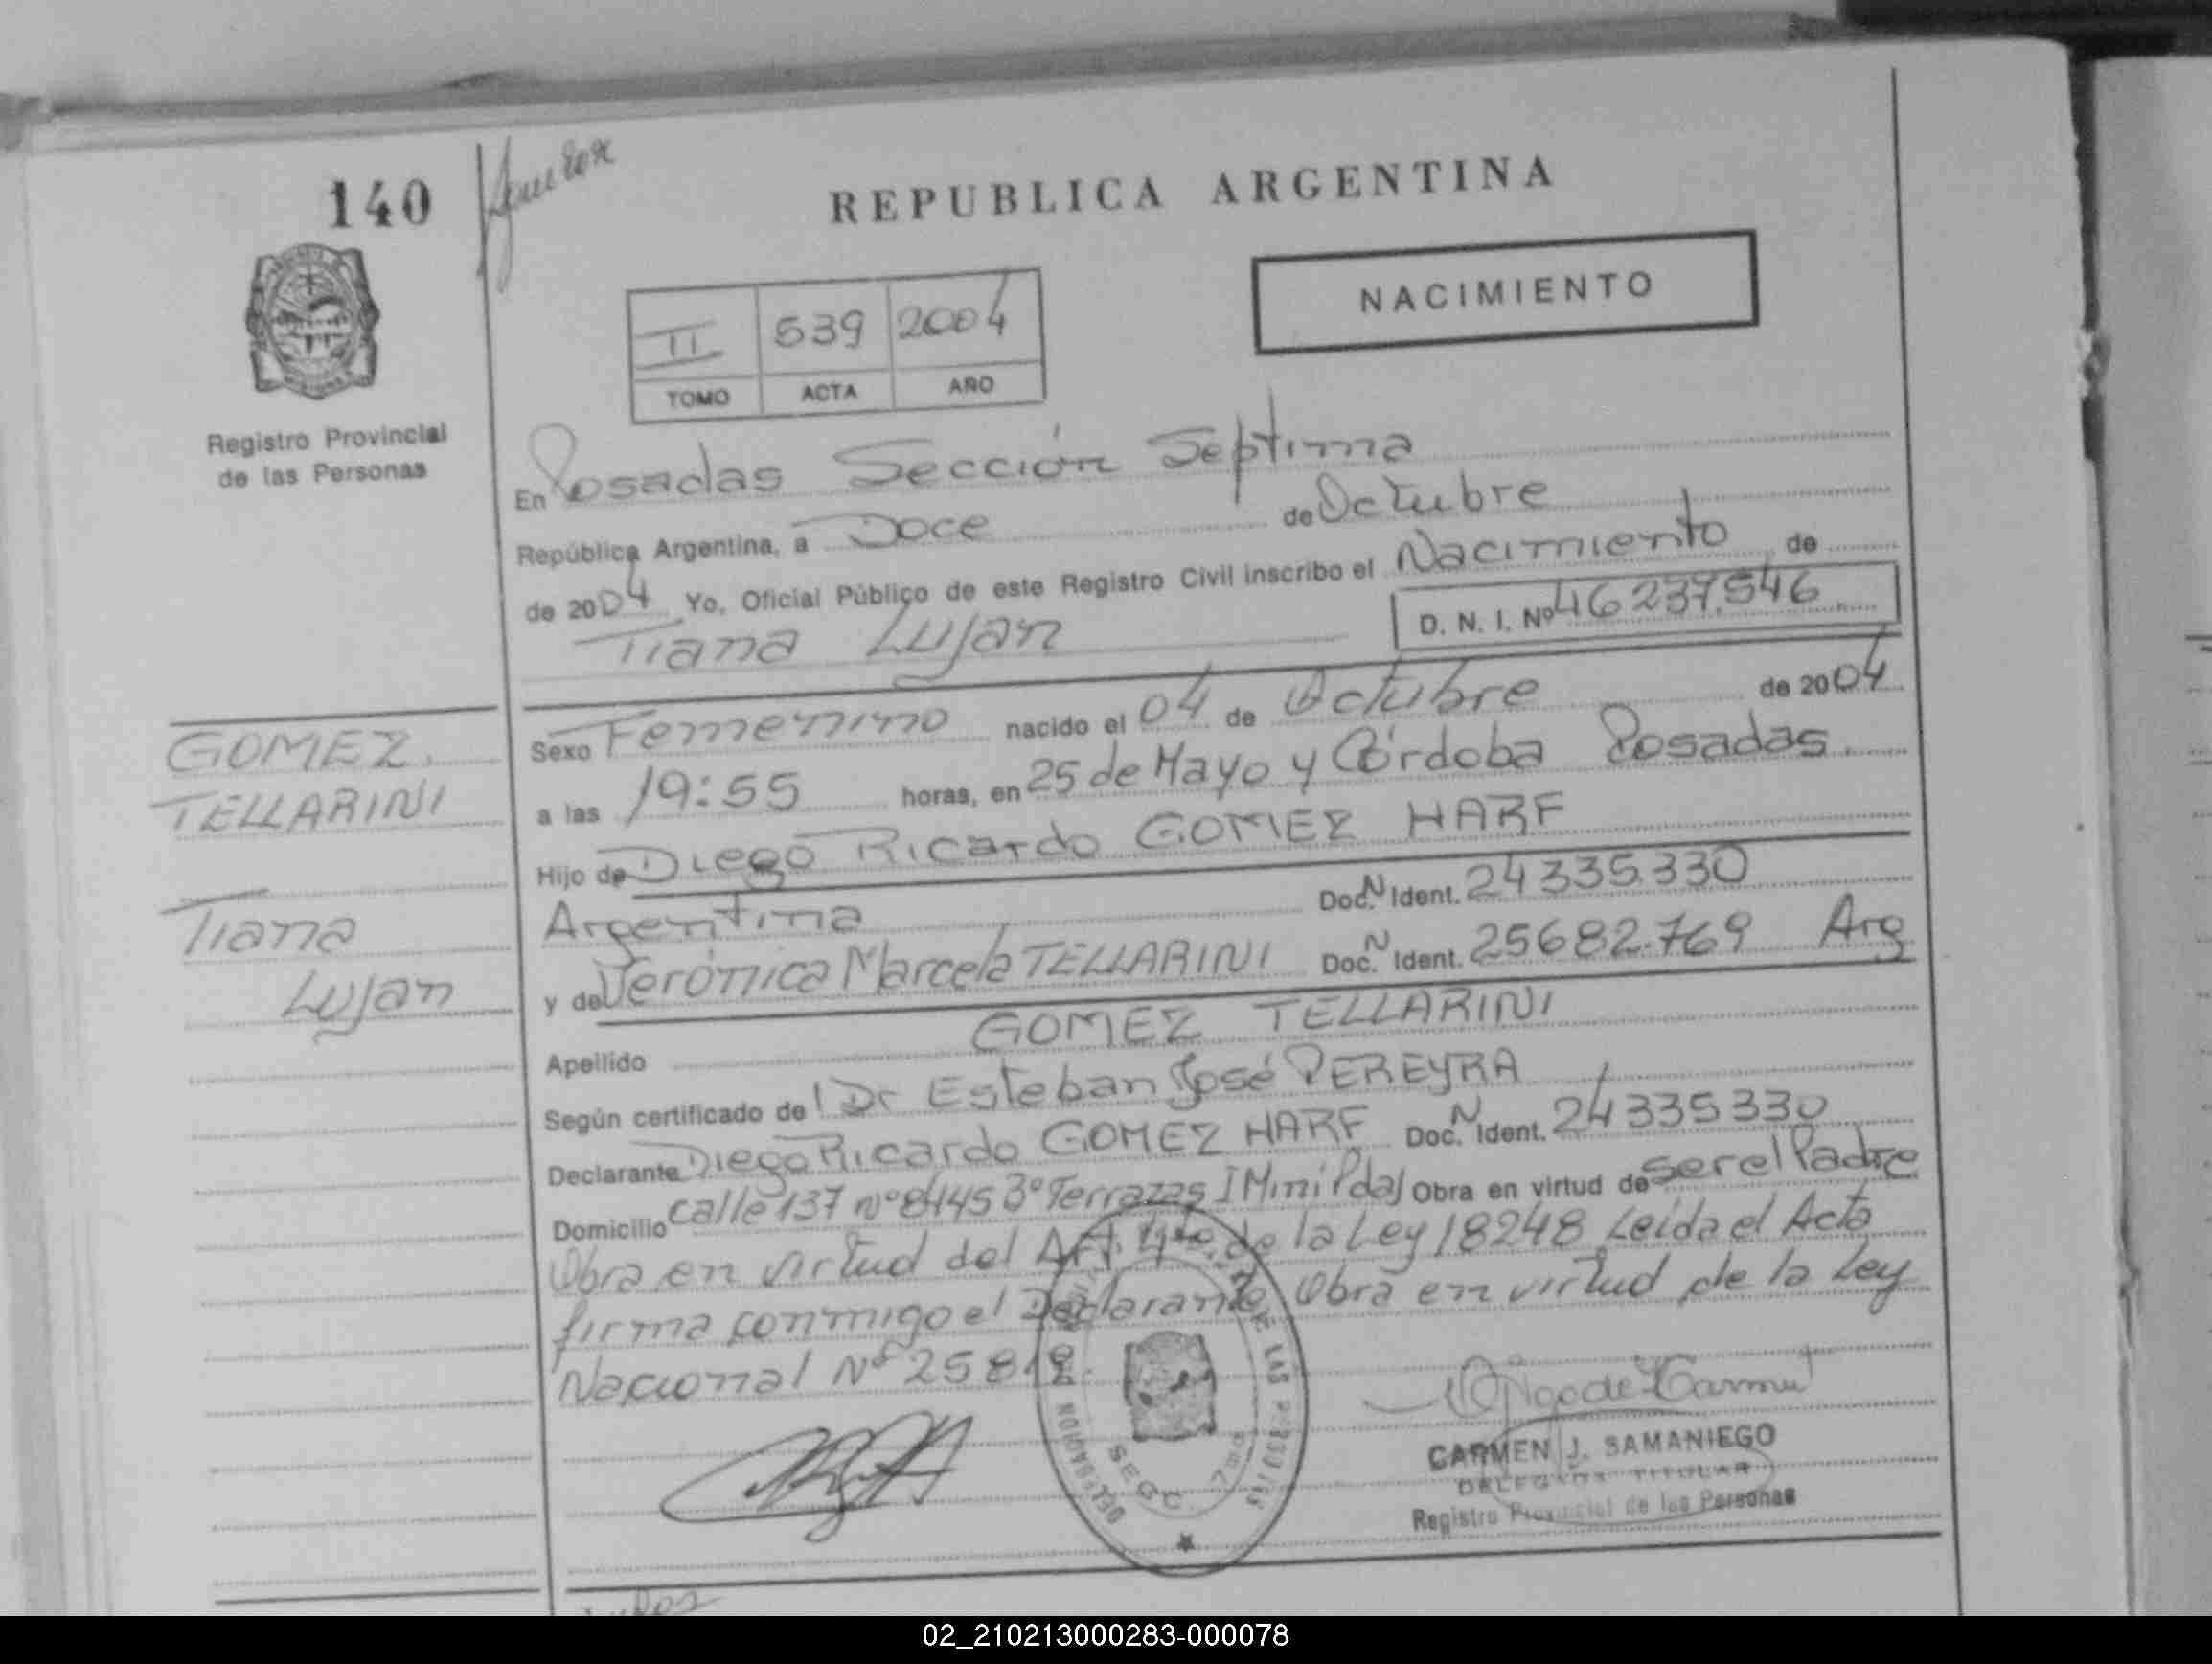 140
REPUBLICA ARGENTINA
NACIMIENTO
II 539 2004
TOMO ACTA AÑO
Registro Provincial
de las Personas
En Posadas Sección Septima
República Argentina, a Doce de Octubre
de 2004 Yo, Oficial Público de este Registro Civil inscribo el Nacimiento de
Tiana Lujan D. N. I. Nº 46237.546
GOMEZ
TELLARINI
Tiana
Lujan
Sexo Femenino nacido el 04 de Octubre de 2004
a las 19:55 horas, en 25 de Mayo y Córdoba Posadas
Hijo de Diego Ricardo GOMEZ HARF
Argentina Doc. N Ident. 24335.330
y de Verónica Marcela TELLARINI Doc. N Ident. 25682.769 Arg
Apellido GOMEZ TELLARINI
Según certificado de l Dr Esteban José PEREYRA
Declarante Diego Ricardo GOMEZ HARF Doc. N Ident. 24335330
Domicilio calle 137 nº 8445 3º Terrazas I Mini Pdas Obra en virtud de ser el Padre
Obra en virtud del Art. 4to. de la Ley 18248 Leida el Acta
firma conmigo el Declarante Obra en virtud de la Ley
Nacional Nº 25819.
CARMEN J. SAMANIEGO
DELEGADA TITULAR
Registro Provincial de las Personas
DE LAS PERSONAS
SECC. 7ma
02_210213000283-000078